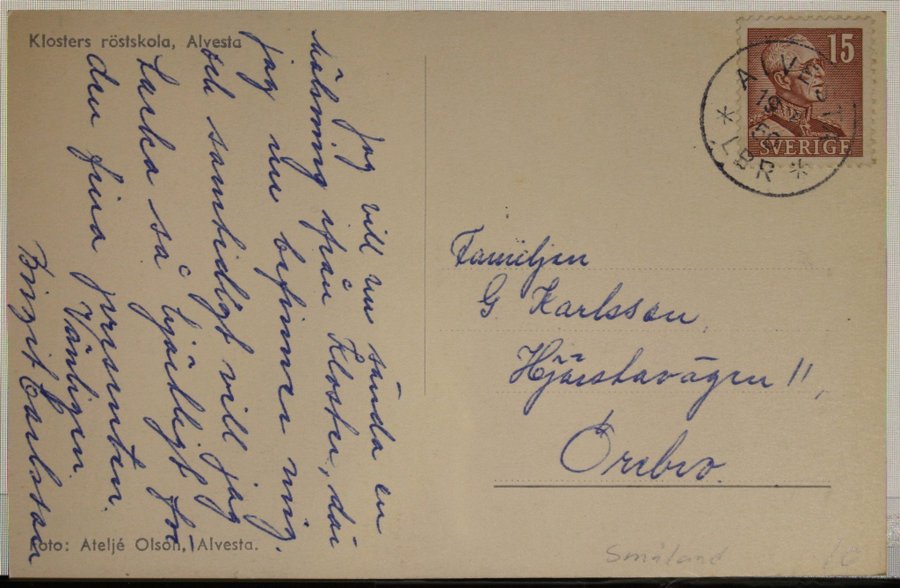 Klosters röstskola, Alvesta
Jag vill nu sända en
hälsning ifrån Kloster, där
jag nu befinner mig.
och samtidigt vill jag
tacka så hjärtligt för
den fina presenten.
Vänligen
Birgit Carlsson
Foto: Ateljé Olson, Alvesta.
15
SVERIGE
ALVESTA
19
50
* LBR *
Familjen
G Karlsson
Hjärstavägen 11,
Örebro.
Småland
10